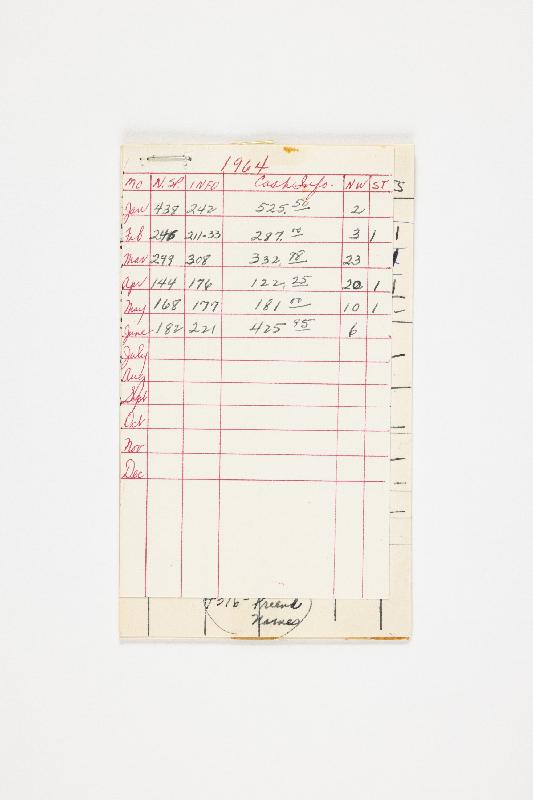 1964
MO N.SP. INFO Cash Info. NW ST
Jan 438 242 525.50 2
Feb 246 211-33 287.00 3 1
Mar 299 308 332.78 23
Apr 144 176 122.25 20 1
May 168 177 181.00 10 1
June 182 221 425.95 6
July
Aug
Sept
Oct
Nov
Dec
Friend
Names